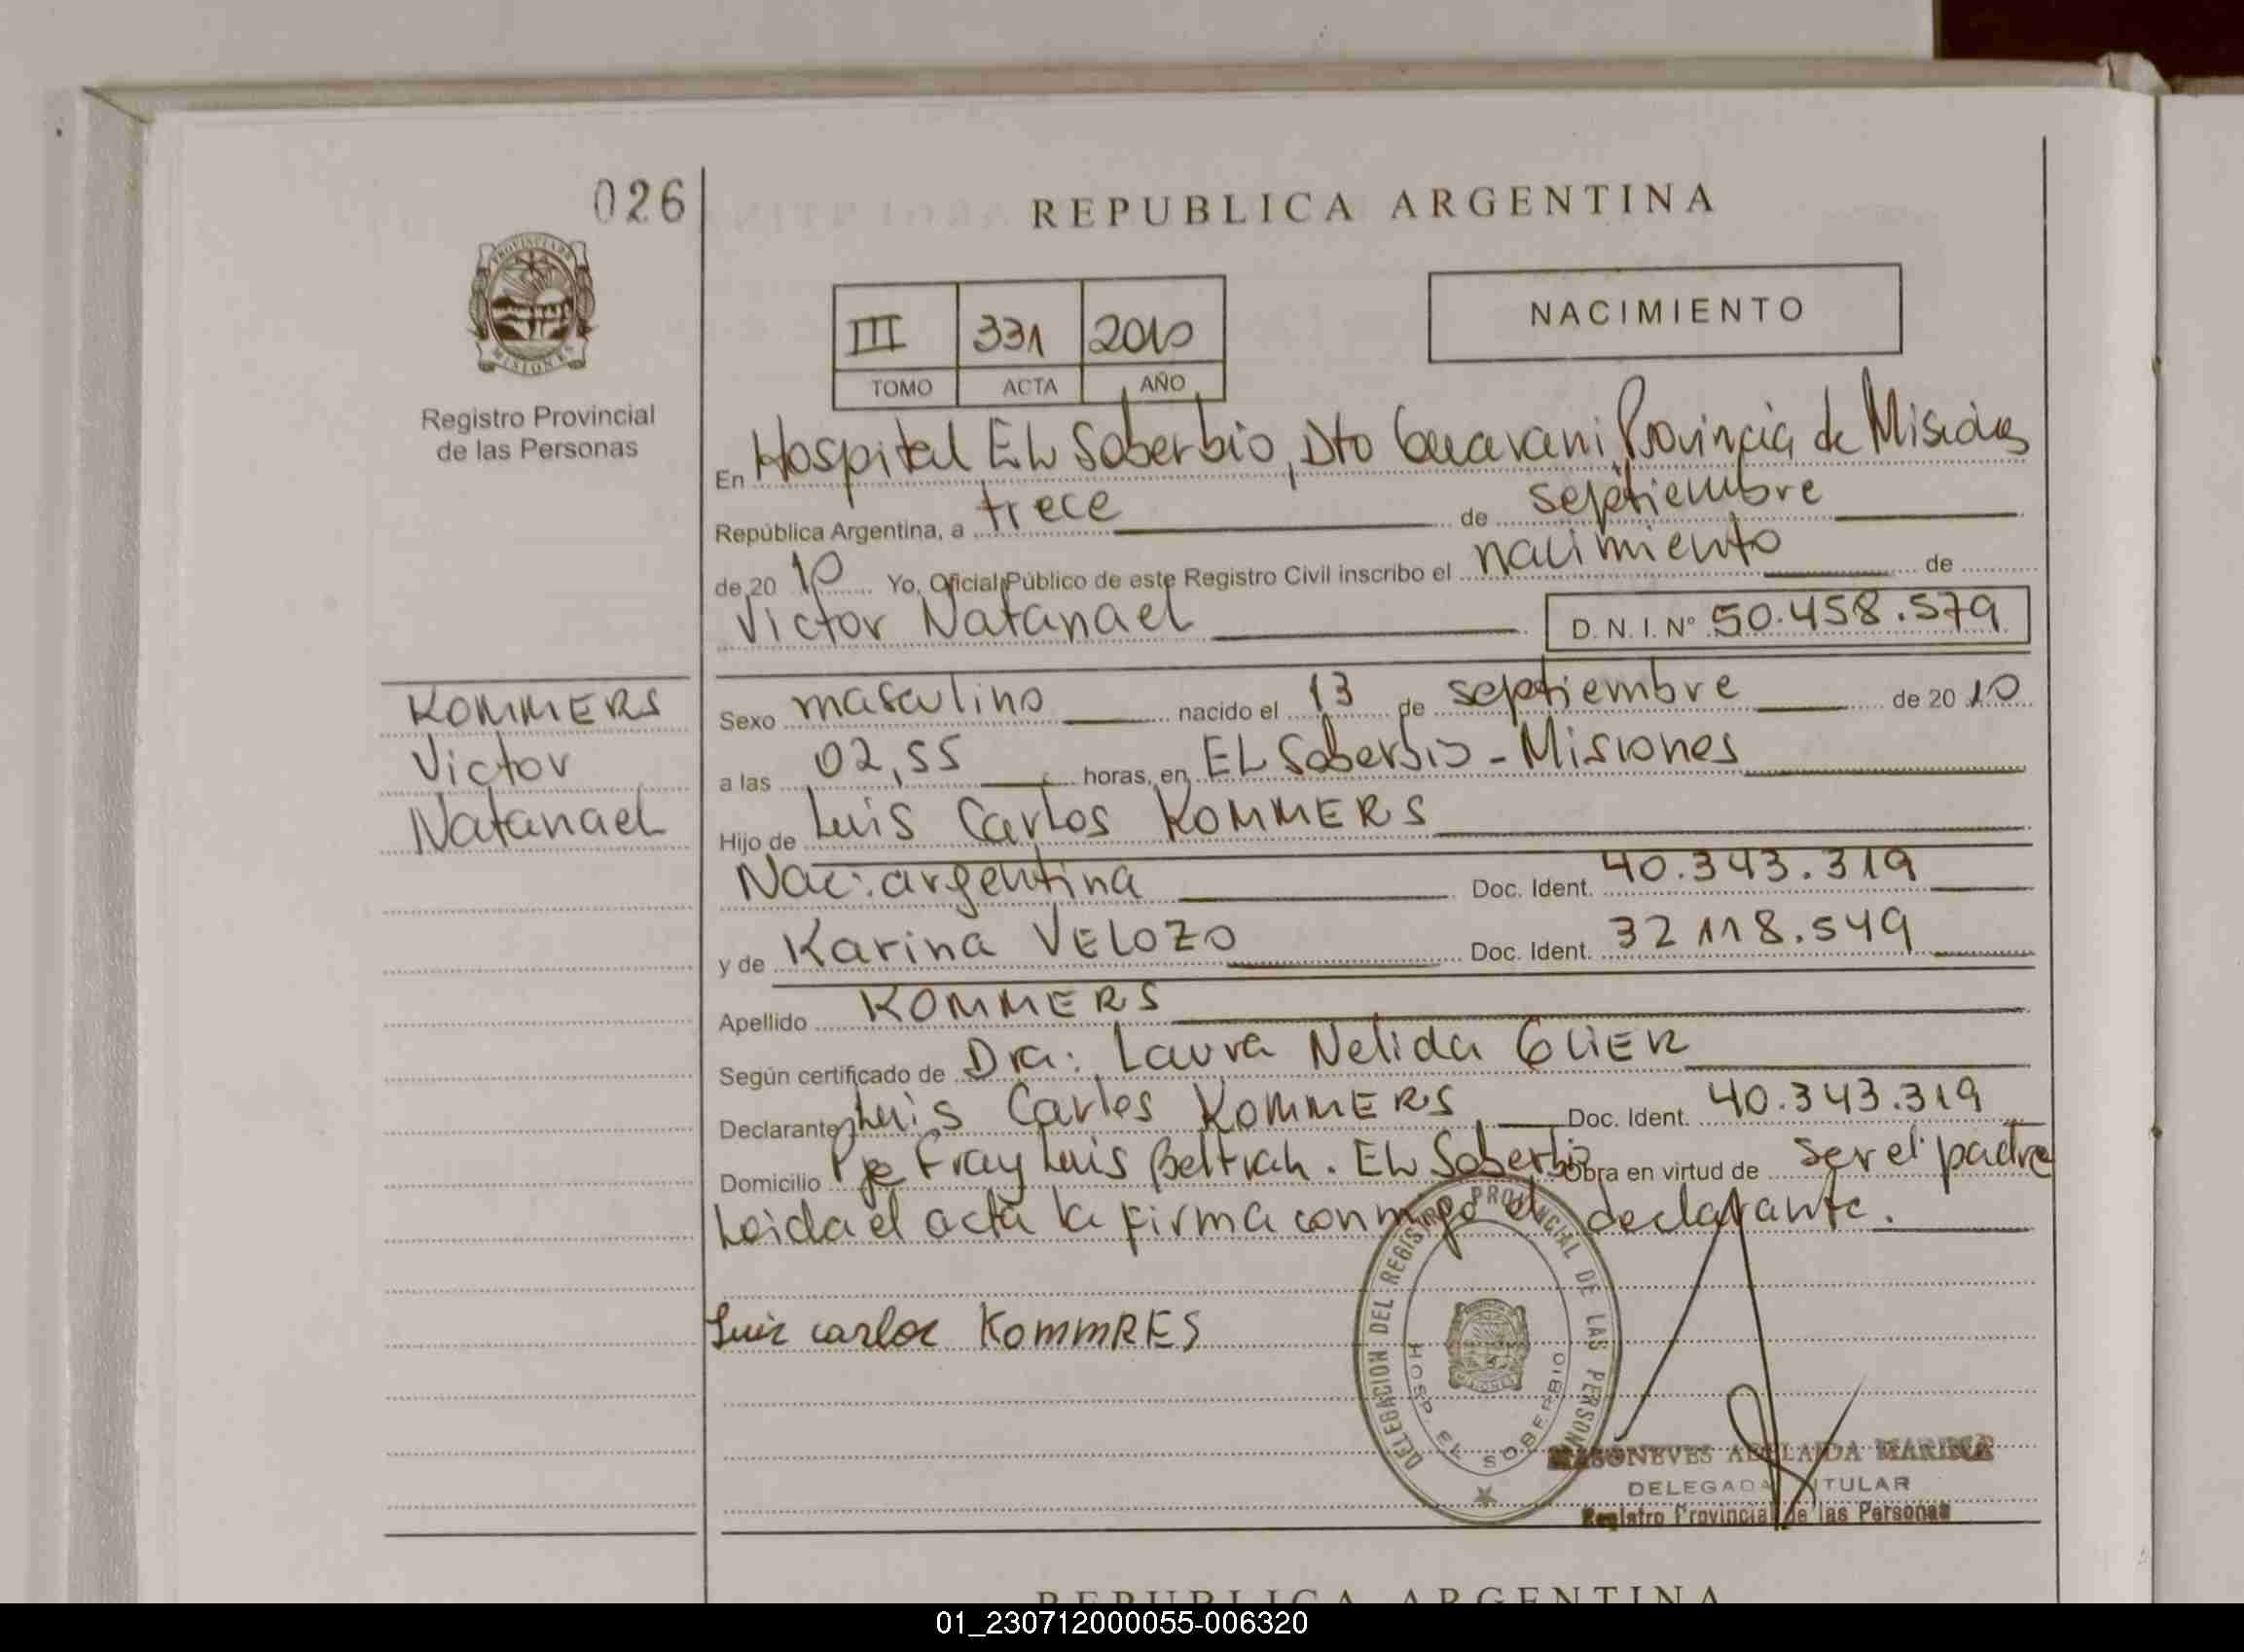 026
REPUBLICA ARGENTINA
PROVINCIA DE MISIONES
Registro Provincial
de las Personas
III 331 2010
TOMO ACTA AÑO
NACIMIENTO
En Hospital EL Soberbio, Dto Guarani, Provincia de Misiones
República Argentina, a trece de septiembre
de 2010 Yo, Oficial Público de este Registro Civil inscribo el nacimiento de
Victor Natanael D. N. I. Nº 50.458.579
KOMMERS
Victor
Natanael
Sexo masculino nacido el 13 de septiembre de 2010
a las 02,55 horas, en EL Soberbio - Misiones
Hijo de Luis Carlos KOMMERS
Nac: argentina Doc. Ident. 40.343.319
y de Karina VELOZO Doc. Ident. 32 118.549
Apellido KOMMERS
Según certificado de Dra: Laura Nelida
Declarante Luis Carlos KOMMERS Doc. Ident. 40.343.319
Domicilio Pje Fray Luis Beltran. EL Soberbio Obra en virtud de ser el padre
Leida el acta la firma conmigo el declarante.
Luis carlos KOMMRES
DELEGACION DEL REGISTRO PROVINCIAL DE LAS PERSONAS
HOSP. EL SOBERBIO
MISIONES
DELEGADA TITULAR
Registro Provincial de las Personas
REPUBLICA ARGENTINA
01_230712000055-006320